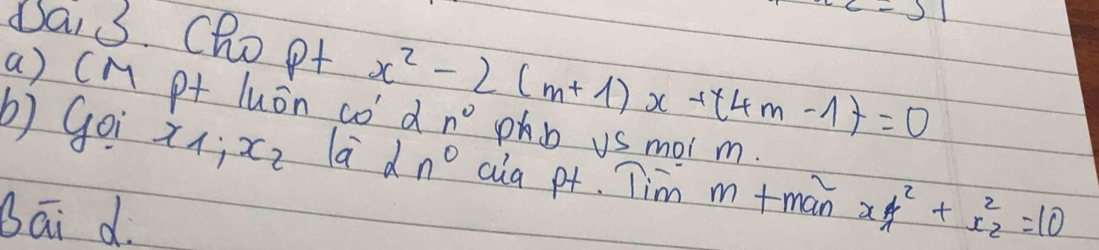 Bài 3. Cho pt x² - 2(m+1)x + (4m-1) = 0
a) CM pt luôn có 2 n⁰ phb vs mọi m.
b) Gọi x₁; x₂ là 2 n⁰ của pt. Tìm m t mãn x₁² + x₂² = 10
Bài 2.